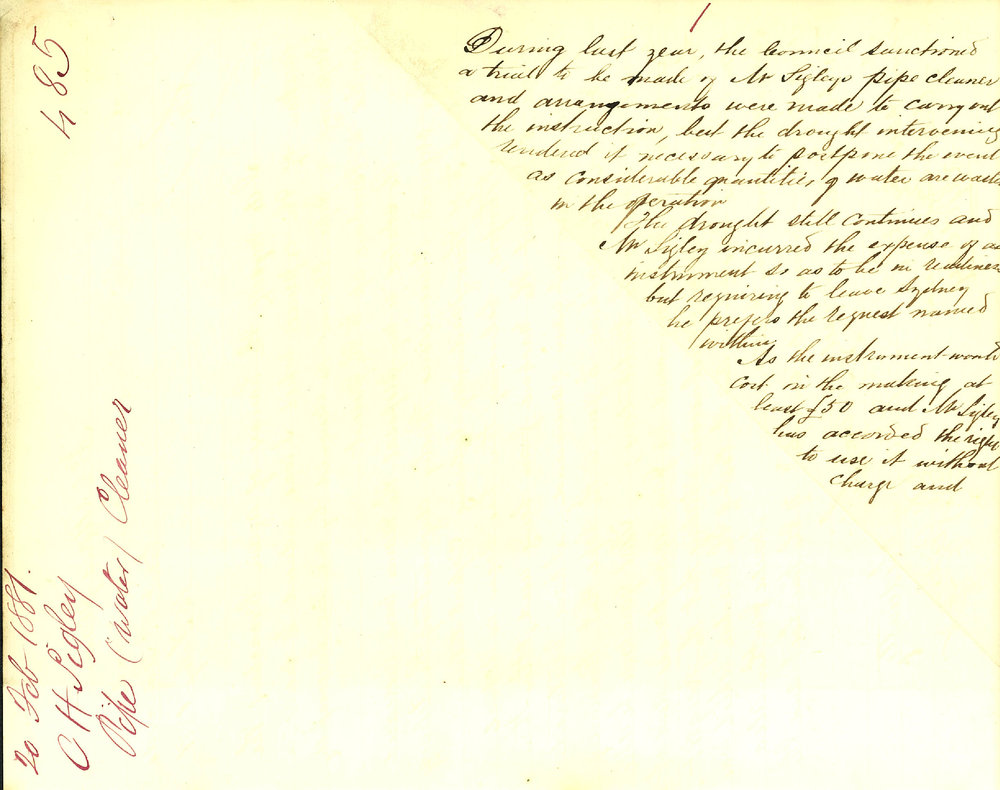 During last year, the Council sanctioned
a trial to be made of Mr Sigleys pipe cleaner
and arrangements were made to carry out
the instruction, but the drought intervening
rendered it necessary to postpone the event
as considerable quantities of water are waste
in the operation
The drought still continues and
Mr Sigley incurred the expense of an
instrument so as to be in readiness
but requiring to leave Sydney
he prefers the request named
within
As the instrument would
cost in the making at
least £50 and Mr Sigley
has accorded the right
to use it without
charge and
485
20 Feb 1881.
C H Sigley
Pipe (water) Cleaner